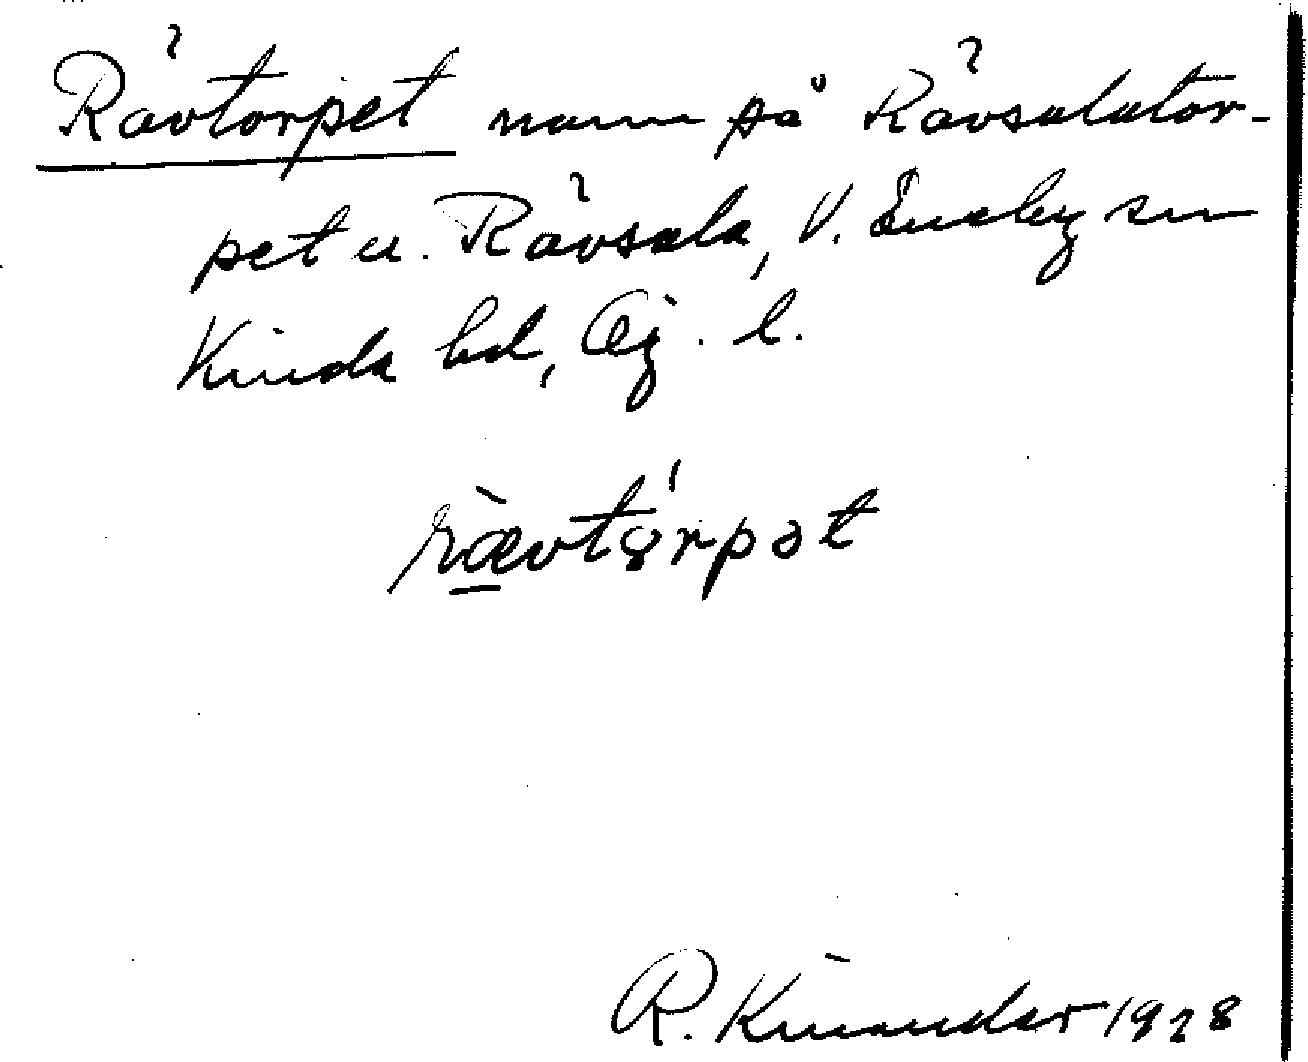 Rävtorpet namn på Rävsalator-
pet u. Rävsala, V. Eneby sn
Kinda hd, Ög. l.
rævtørpət
R. Kinander 1928